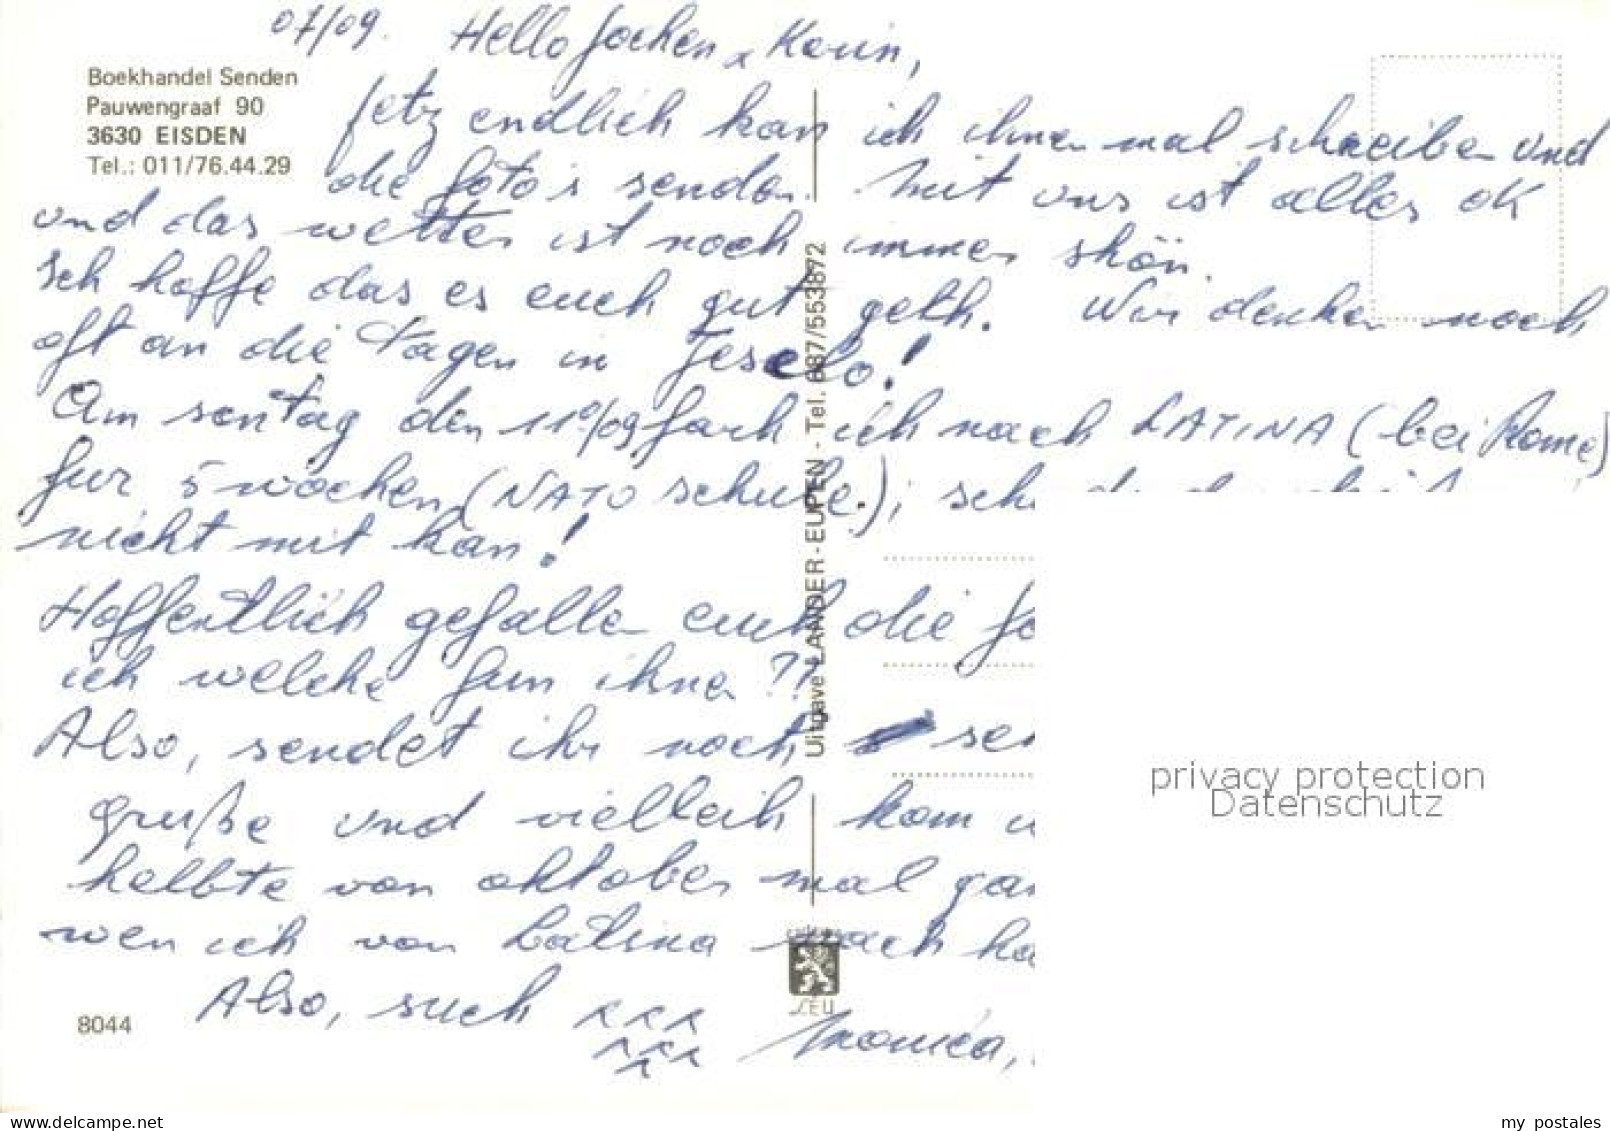 07/09. Hello Jochen & Karin,
Boekhandel Senden
Pauwengraaf 90
3630 EISDEN
Tel.: 011/76.44.29
Jetz endlich kan ich ihnen mal schreiben und
die foto's senden. Mit uns ist alles OK
und das wetter ist noch immer shön.
Ich hoffe das es euch gut geth. Wir denken noch
oft an die tagen in Jesolo!
Am sontag den 11/09 farh ich nach LATINA (bei Rome)
fur 5 wochen (NATO schule.), sch
nicht mit kan!
Hoffentlich gefallen euch die fo
ich welche fun ihnen ??
Also, sendet ihr noch sen
gruße und vielleih kom
helbte von oktober mal gan
wen ich von Latina nach ha
Also, such xxx
xxx
x
Monica,
Uitgave LANDER - EUPEN - Tel. 087/553872
8044
privacy protection
Datenschutz
www.delcampe.net
my postales